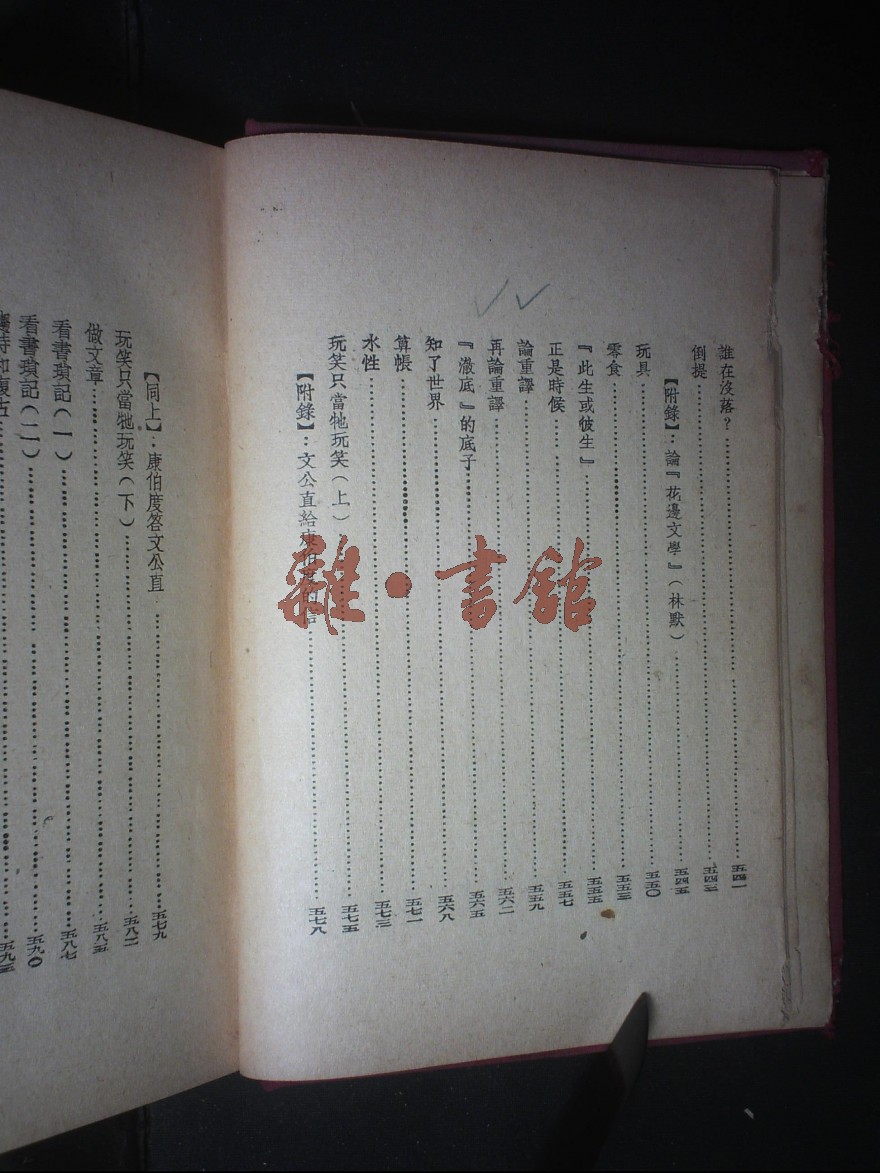 誰在沒落？……五四一
倒提……五四三
【附錄】：論『花邊文學』（林默）……五四五
玩具……五五〇
零食……五五三
『此生或彼生』……五五五
正是時候……五五七
論重譯……五五九
再論重譯……五六二
『澈底』的底子……五六五
知了世界……五六八
算帳……五七一
水性……五七三
玩笑只當牠玩笑（上）……五七五
【附錄】：文公直給康伯度的信……五七八
【同上】：康伯度答文公直……五七九
玩笑只當牠玩笑（下）……五八二
做文章……五八五
看書瑣記（一）……五八七
看書瑣記（二）……五九〇
雜·書館